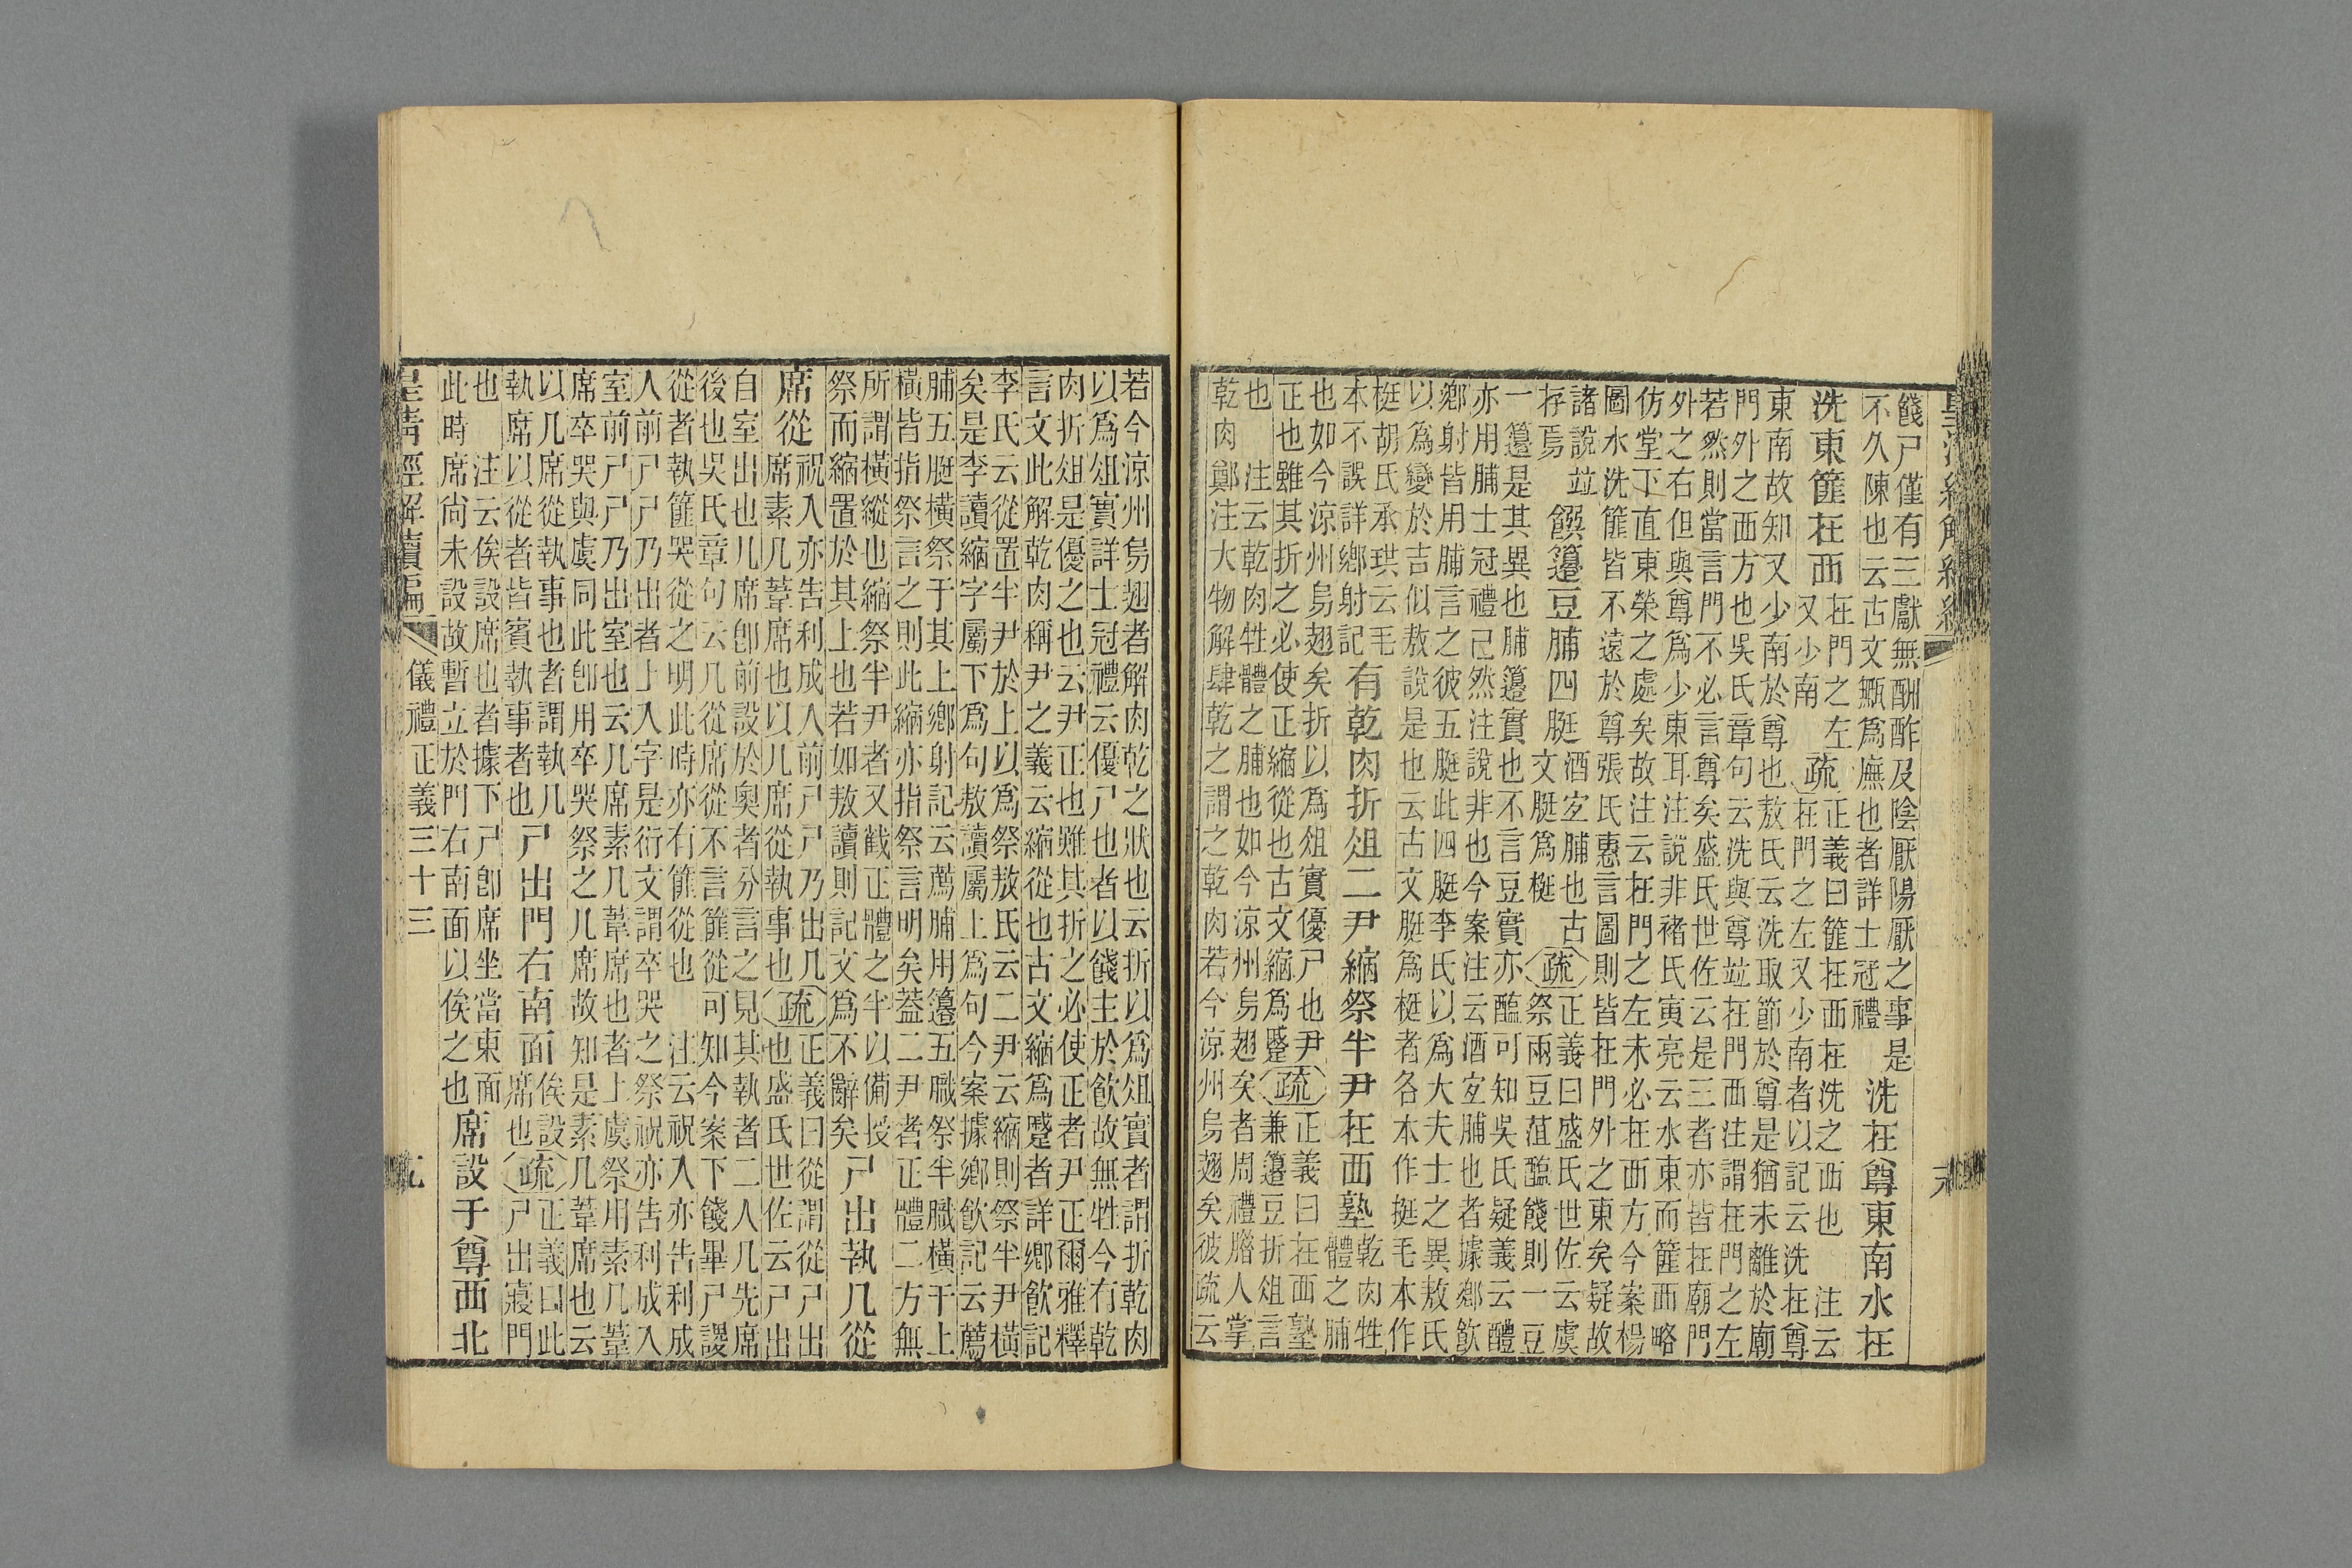 餞尸僅有三獻無酬酢及陰厭陽厭之事是
不久陳也云古文甒爲廡也者詳士冠禮
洗在尊東南水在
洗東篚在西
在門之左
又少南
疏
正義曰篚在西在洗之西也 注云
在門之左又少南者以記云洗在尊
東南故知又少南於尊也敖氏云洗取節於尊是猶未離於廟
門外之西方也吳氏章句云洗與尊竝在門西注謂在門之左
若然則當言門不必言尊矣盛氏世佐云是三者亦皆在廟門
外之右但與尊爲少東耳注說非褚氏寅亮云水東而篚西略
仿堂下直東榮之處矣故注云在門之左未必在西方今案楊
圖水洗篚皆不遠於尊張氏惠言圖則皆在門外之東矣疑故
諸說竝
存焉
饌籩豆脯四脡
酒宜脯也古
文脡爲梃
疏
正義曰盛氏世佐云虞
祭兩豆菹醢餞則一豆
一籩是其異也脯籩實也不言豆實亦醢可知吳氏疑義云醴
亦用脯士冠禮已然注說非也今案注云酒宜脯也者據鄉飲
鄉射皆用脯言之彼五脡此四脡李氏以爲大夫士之異敖氏
以爲變於吉似敖說是也云古文脡爲梃者各本作挺毛本作
梃胡氏承珙云毛
本不誤詳鄉射記
有乾肉折俎二尹縮祭半尹在西塾
乾肉牲
體之脯
也如今涼州烏翅矣折以爲俎實優尸也尹
正也雖其折之必使正縮從也古文縮爲蹙
疏
正義曰在西塾
兼籩豆折俎言
也 注云乾肉牲體之脯也如今涼州烏翅矣者周禮腊人掌
乾肉鄭注大物解肆乾之謂之乾肉若今涼州烏翅矣彼疏云
若今涼州烏翅者解肉乾之狀也云折以爲俎實者謂折乾肉
以爲俎實詳士冠禮云優尸也者以餞主於飲故無牲今有乾
肉折俎是優之也云尹正也雖其折之必使正者尹正爾雅釋
言文此解乾肉稱尹之義云縮從也古文縮爲蹙者詳鄉飲記
李氏云從置半尹於上以爲祭敖氏云二尹云縮則祭半尹橫
矣是李讀縮字屬下爲句敖讀屬上爲句今案據鄉飲記云薦
脯五脡橫祭于其上鄉射記云薦脯用籩五膱祭半膱橫于上
橫皆指祭言之則此縮亦指祭言明矣蓋二尹者正體二方無
所謂橫縱也縮祭半尹者又截正體之半以備授
祭而縮置於其上也若如敖讀則記文爲不辭矣
尸出執几從
席從
祝入亦告利成入前尸尸乃出几
席素几葦席也以几席從執事也
疏
正義曰從謂從尸出
也盛氏世佐云尸出
自室出也几席卽前設於奧者分言之見其執者二人几先席
後也吳氏章句云几從席從不言篚從可知今案下餞畢尸謖
從者執篚哭從之明此時亦有篚從也 注云祝入亦告利成
入前尸尸乃出者上入字是衍文謂卒哭之祭祝亦告利成入
室前尸尸乃出室也云几席素几葦席也者上虞祭用素几葦
席卒哭與虞同此卽用卒哭祭之几席故知是素几葦席也云
以几席從執事也者謂執几
執席以從者皆賓執事者也
尸出門右南面
俟設
席也
疏
正義曰此
尸出寢門
也 注云俟設席也者據下尸卽席坐當東面
此時席尚未設故暫立於門右南面以俟之也
席設于尊西北
皇清經解續編
儀禮正義三十三